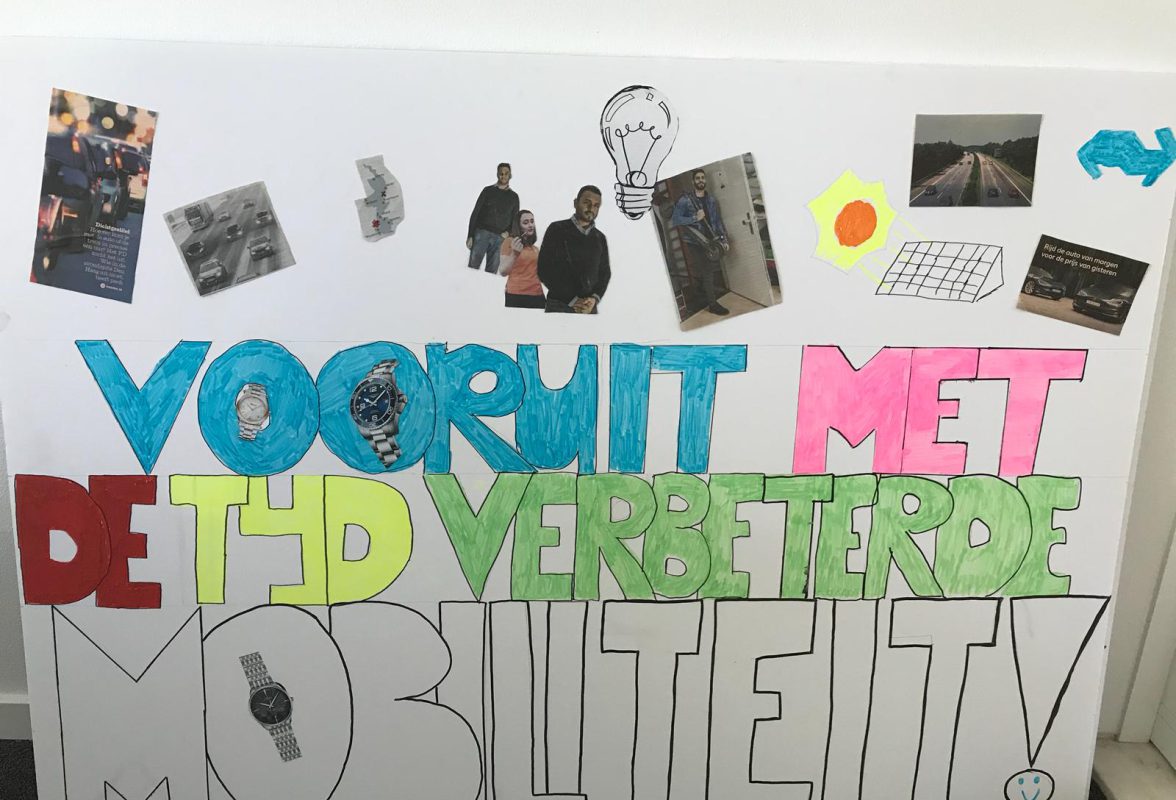 Dichtgeslibd
Rijd de auto van morgen
voor de prijs van gisteren
VOORUIT MET
DE TYD VERBETERDE
MOBILITEIT!